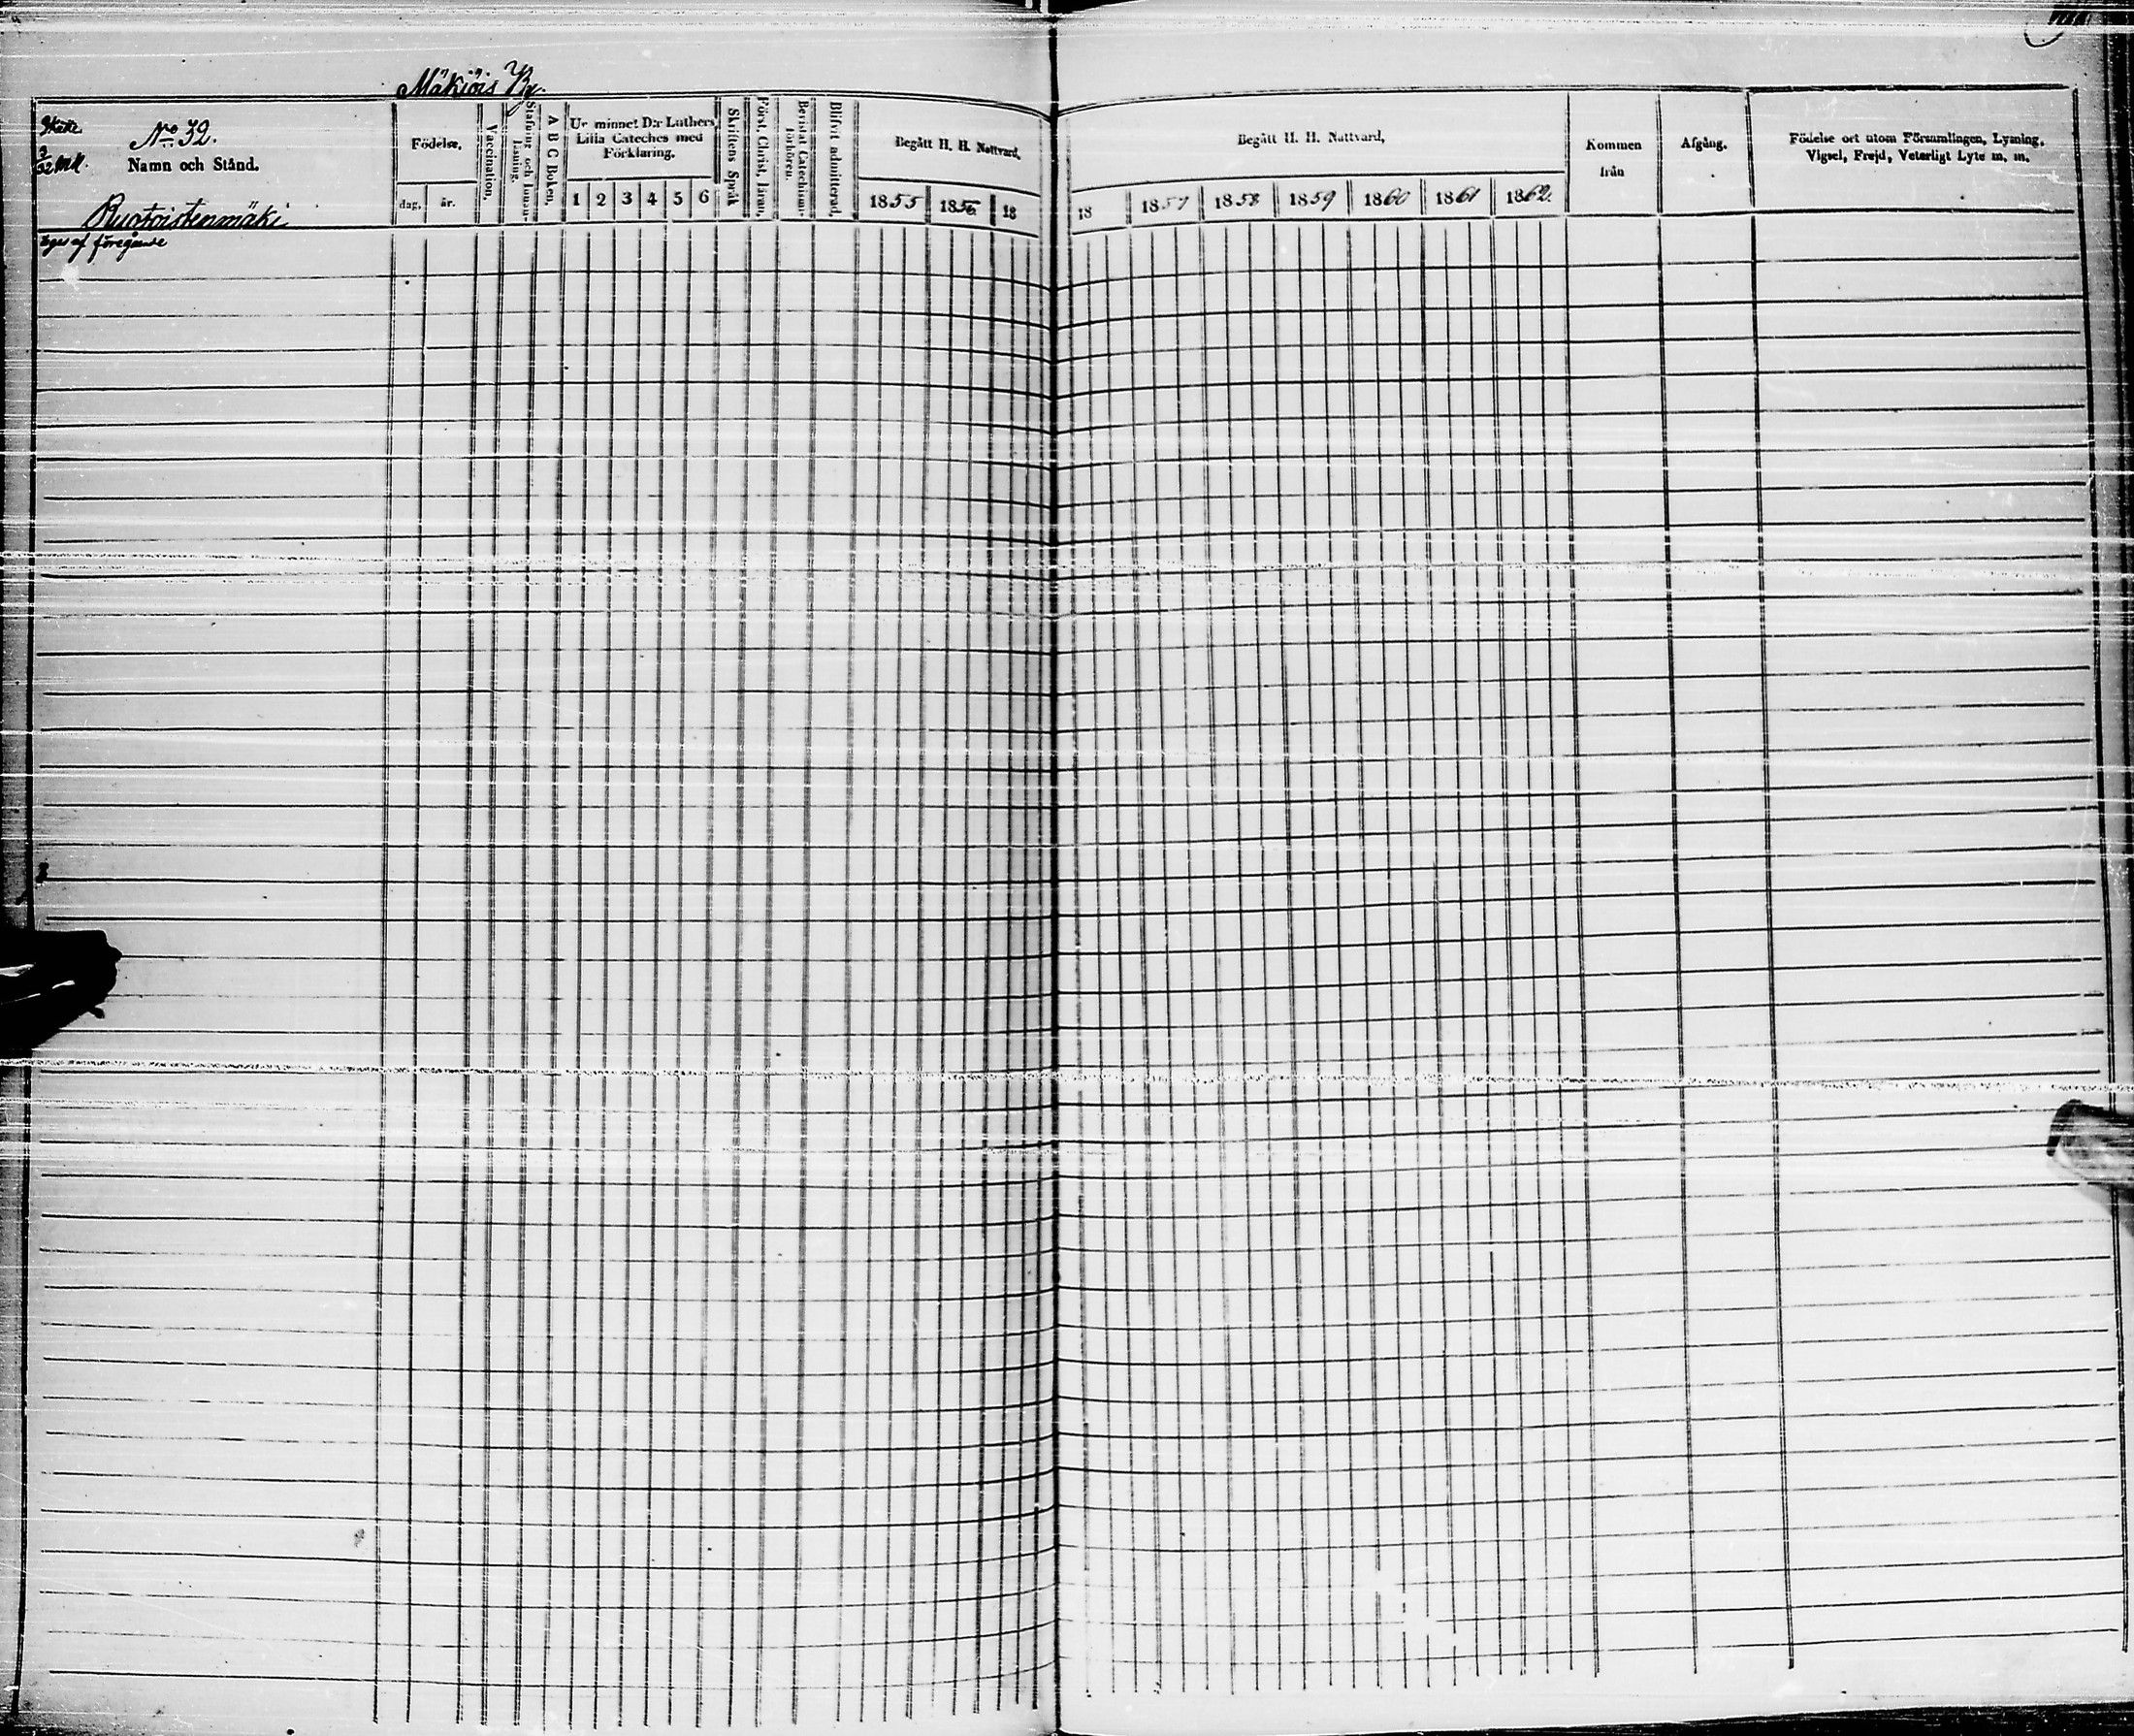 Mäkiöis By.
Skatte
3/32 mtl.
No 32.
Namn och Stånd.
Ruotoistenmäki
Eges af föregående
Födelse.
dag. år.
Vaccination.
Stafning och Innan-
läsning.
A B C Boken.
Ur minnet D:r Luthers
Lilla Cateches med
Förklaring.
1 2 3 4 5 6
Skriftens Språk
Först. Christ. läran.
Bevistat Catechismi-
förhören.
Blifvit admitterad.
Begått H. H. Nattvard.
1855 1856 18
Begått H. H. Nattvard,
18 1857 1858 1859 1860 1861 1862.
Kommen
från
Afgång.
Födelse ort utom Församlingen, Lysning,
Vigsel, Frejd, Veterligt Lyte m. m.